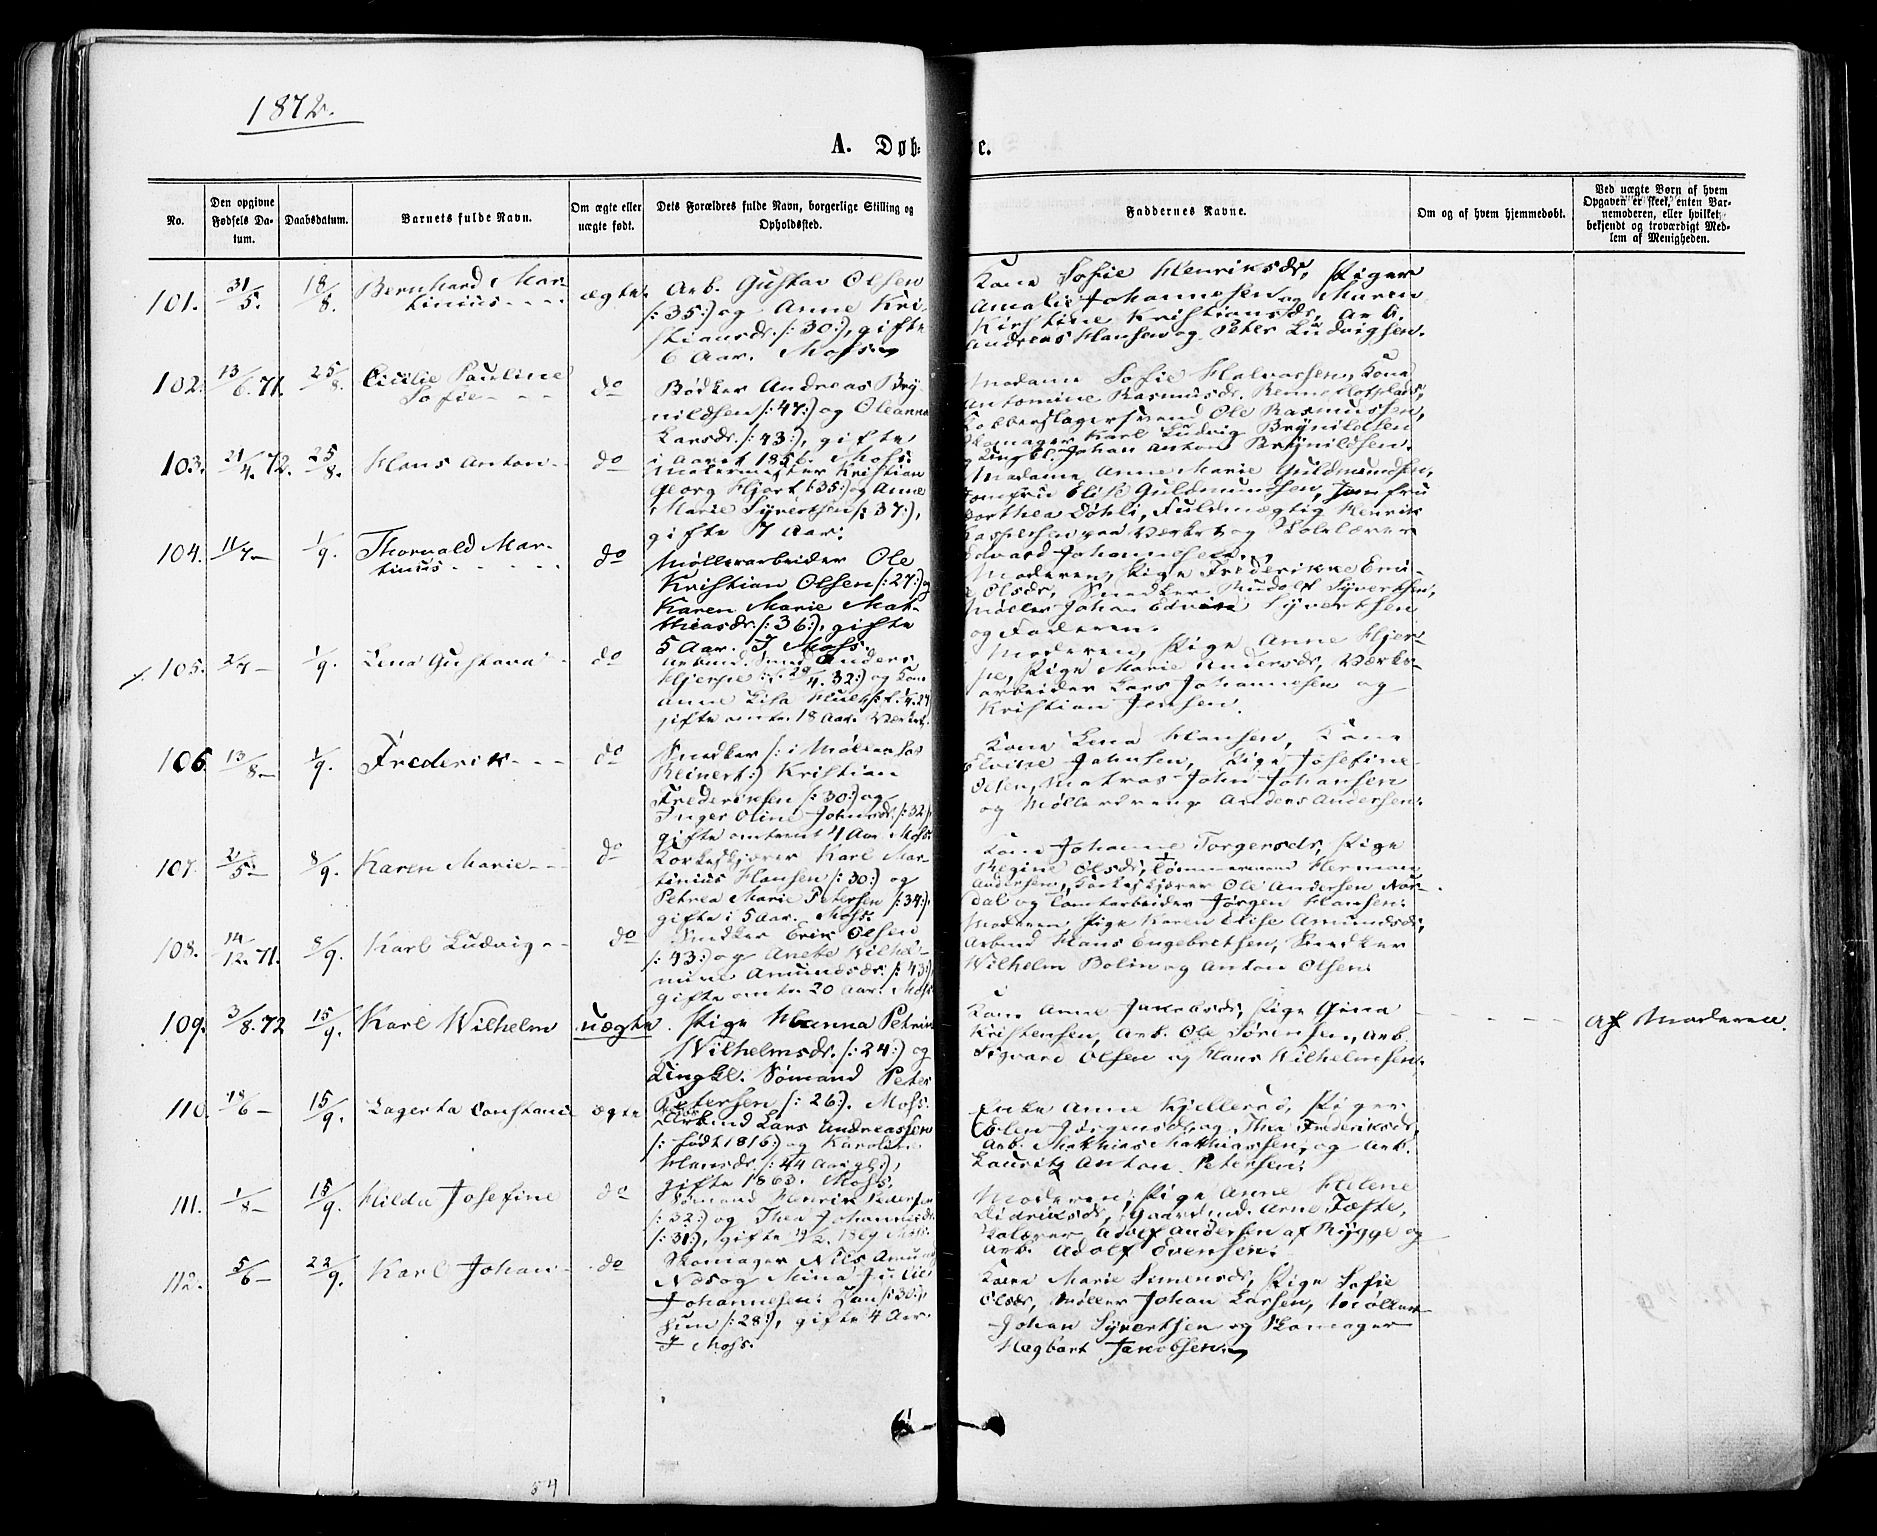 1872.
A. Døb-
e.
No.
Den opgivne Fødsels Datum.
Daabsdatum.
Barnets fulde Navn.
Om ægte eller uægte født.
Dets Forældres fulde Navn, borgerlige Stilling og Opholdssted.
Faddernes Navne.
Om og af hvem hjemmedøbt.
Ved uægte Børn af hvem Opgaven er skeet, enten Barnemoderen, eller hvilket bekjendt og troværdigt Medlem af Menigheden.
101. 31/5. 18/8. Bernhard Mar-
tinius
ægte.
Arb. Gustav Olsen
/:35:/ og Anne Kri-
stiansdr. /:30:/, gifte
6 Aar. Moss.
Kone Sofie Henriksdr, Piger
Amalie Johannesen og Maren
Kirstine Kristiansdr, Arb.
Andreas Hansen og Peter Ludvigsen.
102. 13/6.71. 25/8. Cicilie Pauline
Sofie
do
Bødker Andreas Bry-
nildsen /:47:/ og Oleanna
Larsdr. /:43:/, gifte
i Aaret 1856. Moss.
Madame Sofie Halvorsen, Kone
Antomine Rasmusdr.
Kobberslagersvend Ole Rasmussen,
Skomager Karl Ludvig Brynildsen
og Ungkl. Johan Anton Brynildsen.
103. 21/4.72. 25/8. Hans Anton
do
Malermester Kristian
Georg Hjort /:35:/ og Anne
Marie Syvertsen /:37:/,
gifte 7 Aar.
Madame Anne Marie Guldmundsen,
Jomfru Elise Guldmundsen, Jomfru
Dorthea Døhli, Fuldmægtig Henrik
paa Værket og Skolelærer
Edvard Johannesen.
104. 11/7 1/9. Thorvald Mar-
tinius
do
Møllerarbeider Ole
Kristian Olsen /:27:/ og
Karen Marie Mat-
hiasdr. /:36:/, gifte
5 Aar. I Moss.
Moderen, Pige Frederikke
Olsdr, Snedker Rudolf Syvertsen,
Møller Johan Edvin Syvertsen
og Faderen.
105. 2/7 1/9. Lena Gustava
do
Anders
Hjerpe 32:/ og Kone
Anna Lisa
gifte omtr. 18 Aar. Værket.
Moderen, Pige Anne Hjer-
pe, Pige Marie Andersdr, Værks-
arbeider Lars Johannesen og
Kristian Jensen.
106. 13/8 1/9. Frederik
do
Snedker /:i Møllen hos
Reinert:/ Kristian
Frederiksen /:30:/ og
Inger Oline Johnsdr. /:32:/,
gifte omtrent 4 Aar. Moss.
Kone Lena Hansen, Kone
Elvine Johnsen, Pige Josefine
Olsen, Matros John Johansen
og Møllerdreng Anders Andersen.
107. 2/5 8/9. Karen Marie
do
Korkeskjærer Karl Mar-
tinius Hansen /:30:/ og
Petrea Marie Petersen /:34:/,
gifte i 5 Aar. Moss.
Kone Johanne Torgersdr, Pige
Regine Olsdr, Tømmermand Herman
Andersen, Korkeskjærer Ole Andersen Nor-
dal og Tomtarbeider Jørgen Hansen.
108. 14/12.71. 8/9. Karl Ludvig
do
Snedker Erik Olsen
/:43:/ og Anete Wilhel-
mine Amundsdr. /:43:/
gifte omtr. 20 Aar. Moss.
Moderen, Pige Karen Elise Amundsdr,
Arbmd Hans Engebretsen, Snedker
Wilhelm Bolin og Anton Olsen.
109. 3/8.72 15/9. Karl Wilhelm
uægte.
Pige Hanna Petrine
Wilhelmsdr. /:24:/ og
Ungkl. Sømand Peter
Petersen /:26:/. Moss.
Kone Anne Jakobsdr, Pige Gina
Kristensen, Arb. Ole Sørensen, Arb.
Sigvard Olsen og Hans Wilhelmsen.
Af Moderen.
110. 18/6 15/9. Lagerta Constanse
ægte
Arbmd Lars Andreassen
/:født 1816:/ og Karoline
Hansdr. /:44 Aar gl:/,
gifte 1863. Moss.
Enke Anne Kjellersø, Piger
Elen Jørgensdr og Thea Frederiksdr,
Arb. Matthias Matthiassen, og Arb.
Lauritz Anton Petersen.
111. 1/8 15/9. Hilda Josefine
do
Sømand Henrik Pedersen
/:32:/ og Thea Johannesdr.
/:31:/, gifte 1869 Moss.
Moderen, Pige Anne Helene
Didriksdr, Gaardmd. Arne Tæfte,
Skolærer Adolf Andersen af Rygge og
Arb. Adolf Evensen.
112. 5/6 22/9. Karl Johan
do
Skomager Nils Amund
Nds og Mina Julie
Johannesen. Han /:30:/,
hun /:28:/, gifte 4 Aar.
I Moss.
Kone Marie Simensdr, Pige Sofie
Olsdr, Møller Johan Larsen, Møller
Johan Syvertsen og Skomager
Hagbart Jakobsen.
54